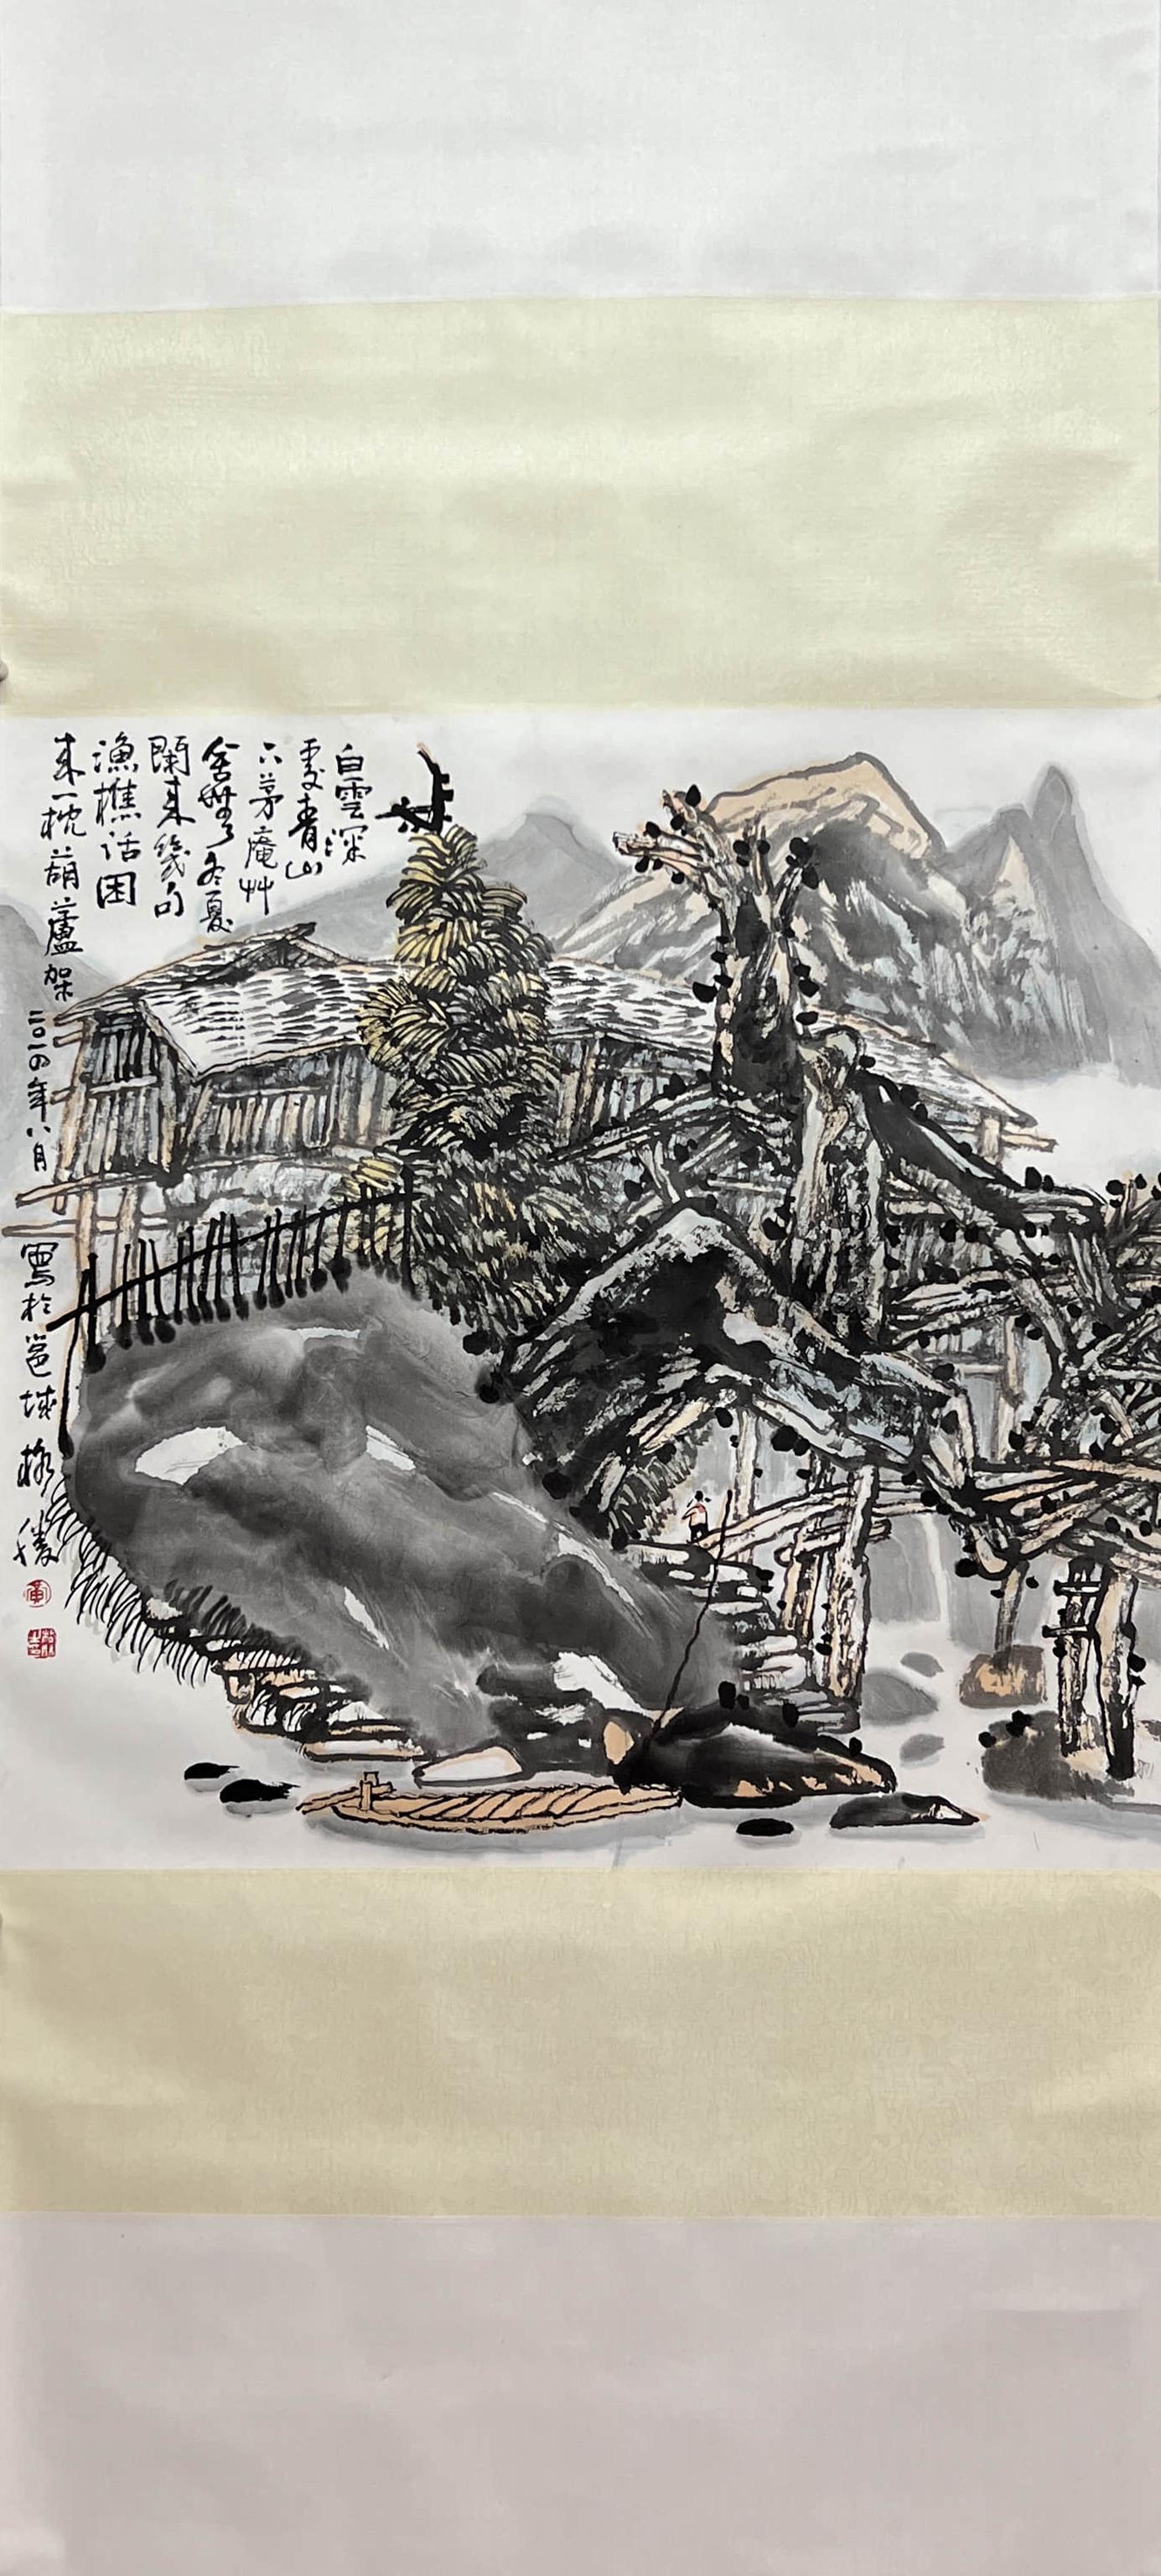 白雲深
處青山
下茅庵艸
舍無冬夏
閑来幾句
漁樵話困
来一枕葫蘆架
二〇一四年八月
寫於邕城 格勝
黃